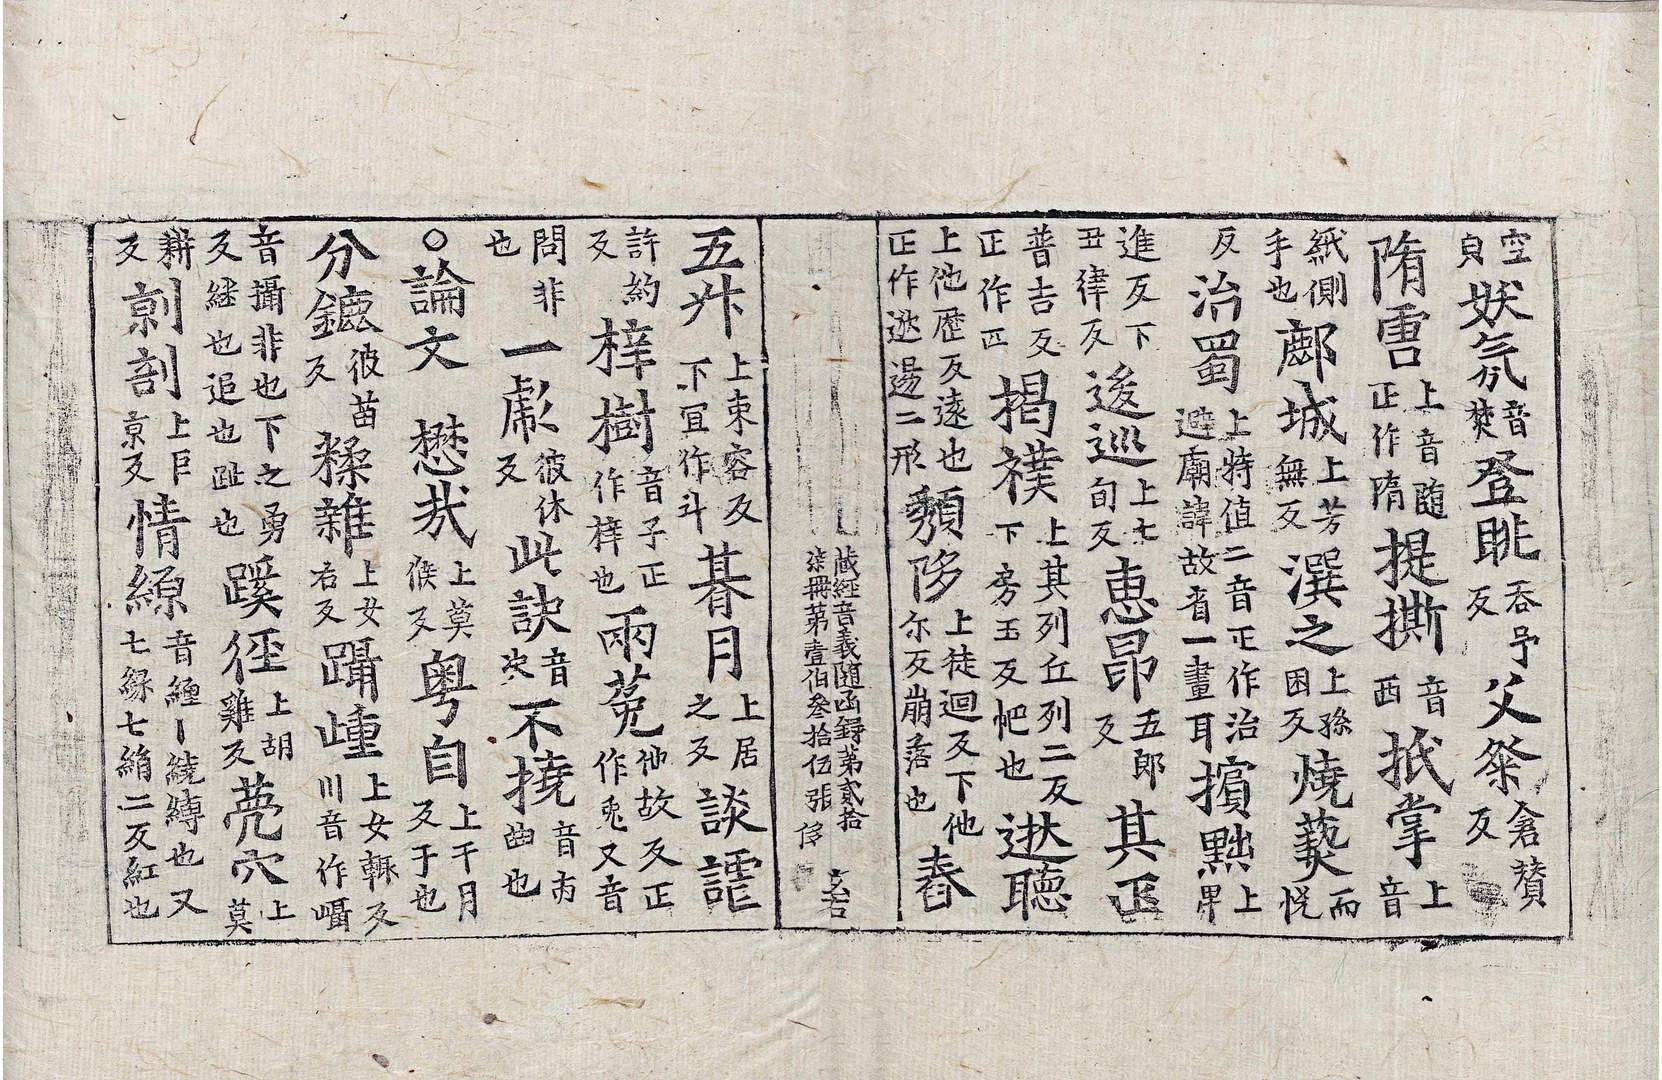 空貞妖氛音焚登眺吞予反父粲倉賛反
隋雲上音隨正作隋提撕音西抵掌上音
紙側手也鄜城上芳無反潠之上孫困反燒爇而悅
反治蜀上特值二音正作治避廟諱故省一畫耳擯黜上畢
進反下丑律反逡巡上七旬反惠昂五郎反其疋
普吉反正作匹揭襆上其列丘列二反下房玉反帊也逖聽
上他歷反遠也正作逖逿二形頽陊上徒迴反下他尔反崩落也舂
藏經音義隨函録第貳拾柒冊第壹伯叁拾伍張 侈
五升上束容反下宜作斗朞月上居之反談謔
許約反梓樹音子正作梓也兩菟他故反正作兎又音
問非也一彪彼休反此訣音決不撓音 曲也
○論文 懋哉上莫候反粤自上于月反于也
分鑣彼苗反糅雜上女右反躡 上女輒反 川音作𡿖
音攝非也下之勇反継也追也趾也蹊徑上胡雞反薨穴上莫
耕反剠剖上巨京反情縓音纏丨繞縛也又七縁七絹二反紅也